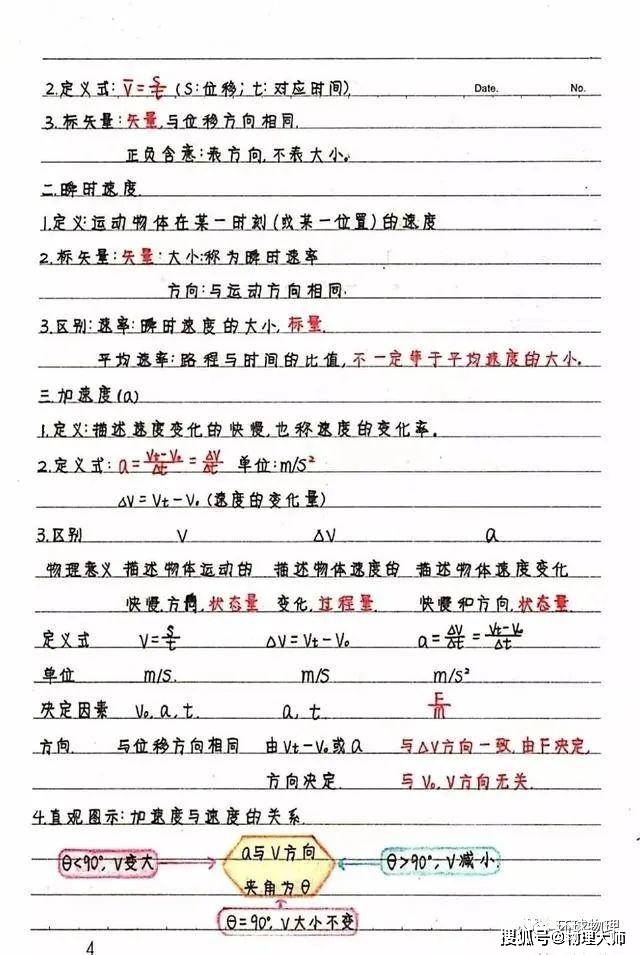 2.定义式: v̄=s/t (S:位移; t:对应时间) Date. No.
3.标矢量:矢量,与位移方向相同.
正负含意:表方向,不表大小。
二.瞬时速度.
1.定义:运动物体在某一时刻(或某一位置)的速度
2.标矢量:矢量:大小:称为瞬时速率
方向:与运动方向相同.
3.区别:速率:瞬时速度的大小,标量.
平均速率:路程与时间的比值,不一定等于平均速度的大小。
三.加速度(a)
1.定义:描述速度变化的快慢,也称速度的变化率。
2.定义式: a=(Vt-V₀)/Δt=ΔV/Δt 单位:m/s²
ΔV=Vt-V₀ (速度的变化量)
3.区别 V ΔV a
物理意义 描述物体运动的 描述物体速度的 描述物体速度变化
快慢.方向,状态量 变化,过程量. 快慢和方向,状态量.
定义式 V=s/t ΔV=Vt-V₀ a=ΔV/Δt=(Vt-V₀)/Δt
单位 m/s. m/s m/s²
决定因素 V₀,a,t. a,t. F/m
方向. 与位移方向相同 由Vt-V₀或a 与ΔV方向一致,由F决定,
方向决定. 与V₀,V方向无关.
4.直观图示:加速度与速度的关系.
θ<90°,V变大 a与V方向 θ>90°,V减小
夹角为θ
θ=90°,V大小不变
环球物理
搜狐号@物理大师
4